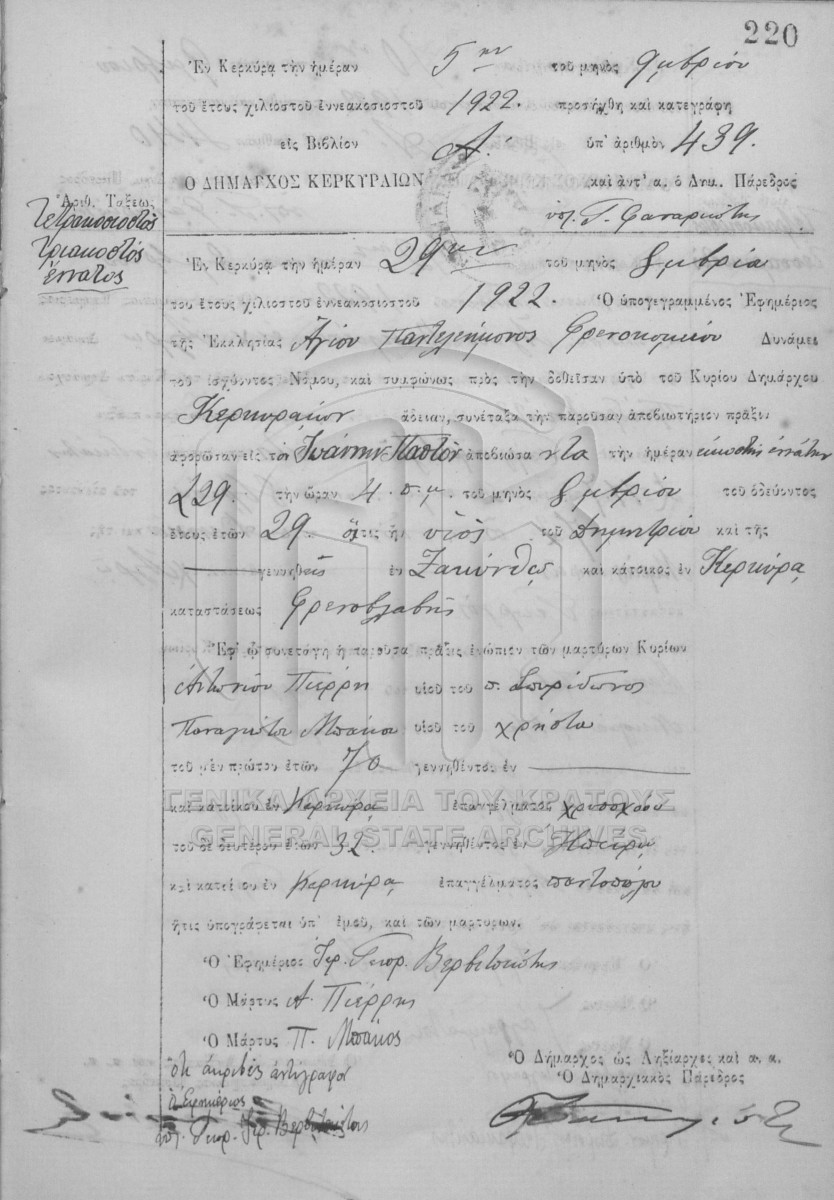 220
Ἐν Κερκύρᾳ τὴν ἡμέραν 5ην τοῦ μηνὸς 9μβρίου
τοῦ ἔτους χιλιοστοῦ ἐννεακοσιοστοῦ 1922. προσήχθη καὶ κατεγράφη
εἰς Βιβλίον Α. ὑπ' ἀριθμὸν 439.
Ὁ ΔΗΜΑΡΧΟΣ ΚΕΡΚΥΡΑΙΩΝ καὶ ἀντ' α. ὁ Δημ. Πάρεδρος
Ἀριθ. Τάξεως
Τετρακοσιοστὸς
Τριακοστὸς
ἔννατος
Ἐν Κερκύρᾳ τὴν ἡμέραν 29ην τοῦ μηνὸς 8μβρίου
του ἔτους χιλιοστοῦ ἐννεακοσιοστοῦ 1922. Ὁ ὑπογεγραμμένος Ἐφημέριος
τῆς Ἐκκλησίας Ἁγίου Παντελεήμονος Φρενοκομείου Δυνάμει
τοῦ ἰσχύοντος Νόμου, καὶ συμφώνως πρὸς τὴν δοθεῖσαν ὑπὸ τοῦ Κυρίου Δημάρχου
Κερκυραίων ἄδειαν, συνέταξα τὴν παροῦσαν ἀποβιωτήριον πρᾶξιν
ἀφορῶσαν εἰς τὸν Ἰωάννην ἀποβιώσαντα τὴν ἡμέραν εἰκοστὴν ἐννάτην
29. τὴν ὥραν 4. π.μ. τοῦ μηνὸς 8μβρίου τοῦ ὁδεύοντος
ἔτους ἐτῶν 29. ὅστις ἦν υἱὸς τοῦ Δημητρίου καὶ τῆς
γεννηθεὶς ἐν Ζακύνθῳ καὶ κάτοικος ἐν Κερκύρᾳ
καταστάσεως Φρενοβλαβὴς
Ἐφ' ᾧ συνετάγη ἡ παροῦσα πρᾶξις ἐνώπιον τῶν μαρτύρων Κυρίων
Ἀντωνίου Πιέρρη υἱοῦ τοῦ π. Σπυρίδωνος
Παναγιώτου Μπάκου υἱοῦ τοῦ Χρήστου
τοῦ μὲν πρώτου ἐτῶν 70 γεννηθέντος ἐν
καὶ κατοίκου ἐν Κερκύρᾳ ἐπαγγέλματος χρυσοχόου
τοῦ δὲ δευτέρου ἐτῶν 32. γεννηθέντος ἐν Ἠπείρῳ
καὶ κατοίκου ἐν Κερκύρᾳ ἐπαγγέλματος παντοπώλου
ἥτις ὑπογράφεται ὑπ' ἐμοῦ, καὶ τῶν μαρτύρων.
Ὁ Ἐφημέριος Ἱερ. Γεωρ. Βερβιτσιώτης
Ὁ Μάρτυς Α. Πιέρρης
Ὁ Μάρτυς Π. Μπάκος
ὅτι ἀκριβὲς ἀντίγραφον
Ὁ Ἐφημέριος
Ὁ Δήμαρχος ὡς Ληξίαρχες καὶ α. α.
Ὁ Δημαρχιακὸς Πάρεδρος
ὑπ. Γεωρ. Ἱερ. Βερβιτσιώτης
ΓΕΝΙΚΑ ΑΡΧΕΙΑ ΤΟΥ ΚΡΑΤΟΥΣ
GENERAL STATE ARCHIVES